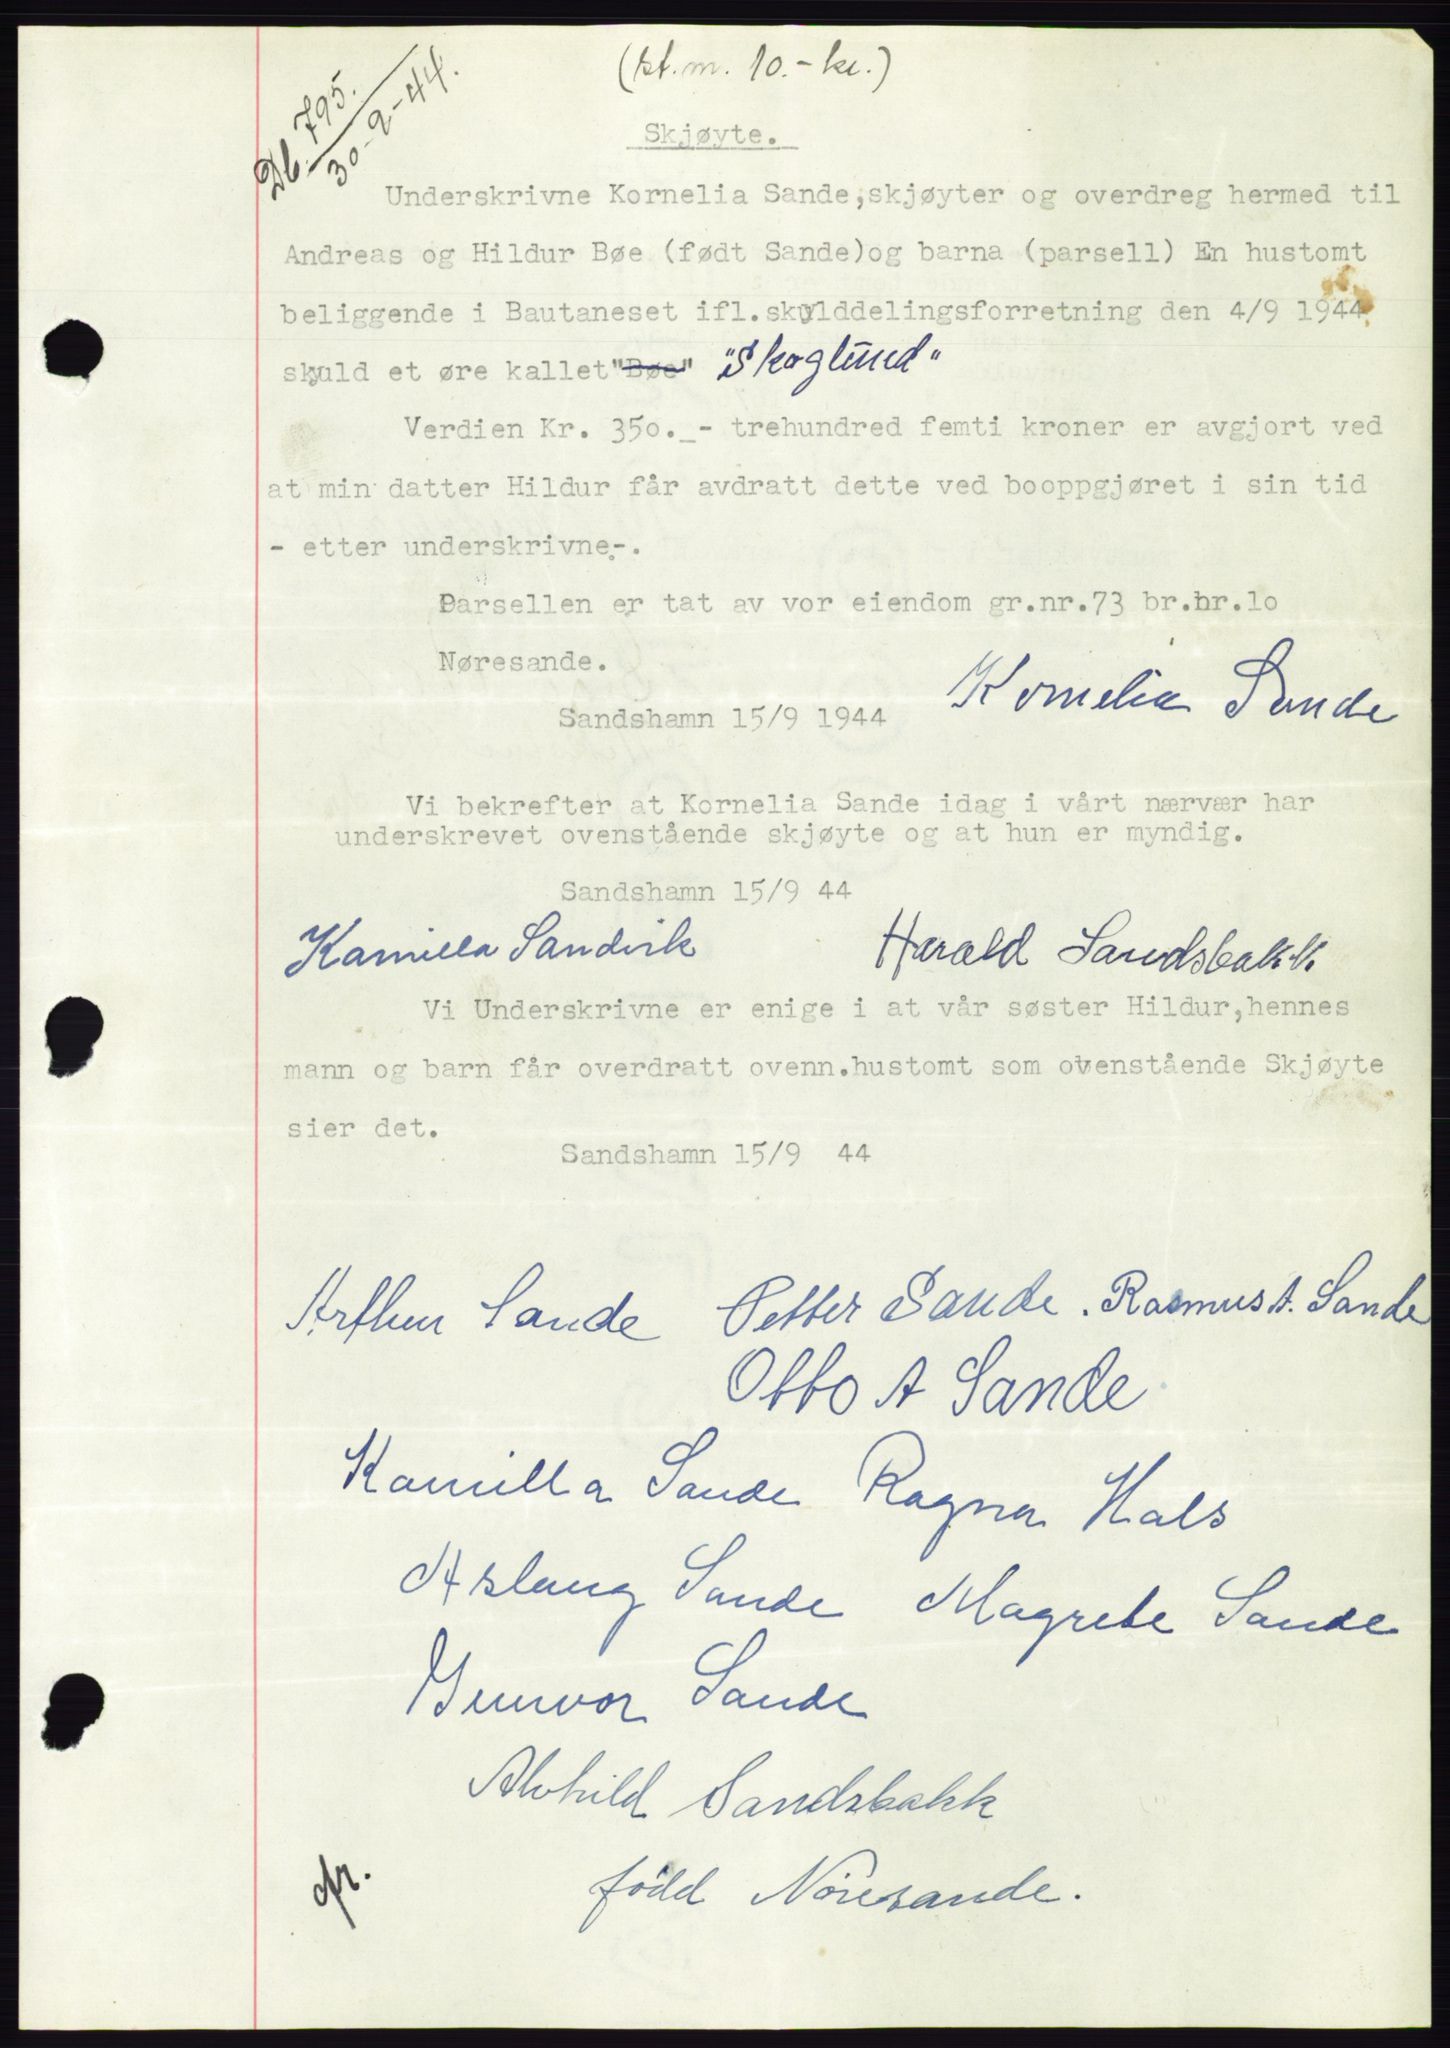 (st.m. 10.- kr.)
Db. 795.
30-9-44.
Skjøyte.
Underskrivne Kornelia Sande,skjøyter og overdreg hermed til
Andreas og Hildur Bøe (født Sande)og barna (parsell) En hustomt
beliggende i Bautaneset ifl.skylddelingsforretning den 4/9 1944
skyld et øre kallet "Bøe" "Skoglund"
Verdien Kr. 350._- trehundred femti kroner er avgjort ved
at min datter Hildur får avdratt dette ved booppgjøret i sin tid
- etter underskrivne-.
Parsellen er tat av vor eiendom gr.nr.73 br.nr.10
Nøresande.
Kornelia Sande
Sandshamn 15/9 1944
Vi bekrefter at Kornelia Sande idag i vårt nærvær har
underskrevet ovenstående skjøyte og at hun er myndig.
Sandshamn 15/9 44
Kamilla Sandvik Harald Sandsbakk.
Vi Underskrivne er enige i at vår søster Hildur,hennes
mann og barn får overdratt ovenn.hustomt som ovenstående Skjøyte
sier det.
Sandshamn 15/9 44
Arthur Sande Petter Sande. Rasmus A. Sande
Otto A Sande
Kamilla Sande Ragna Hals
Aslaug Sande Magrete Sande
Gunvor Sande
Alvhild Sandsbakk
född Nöresande.